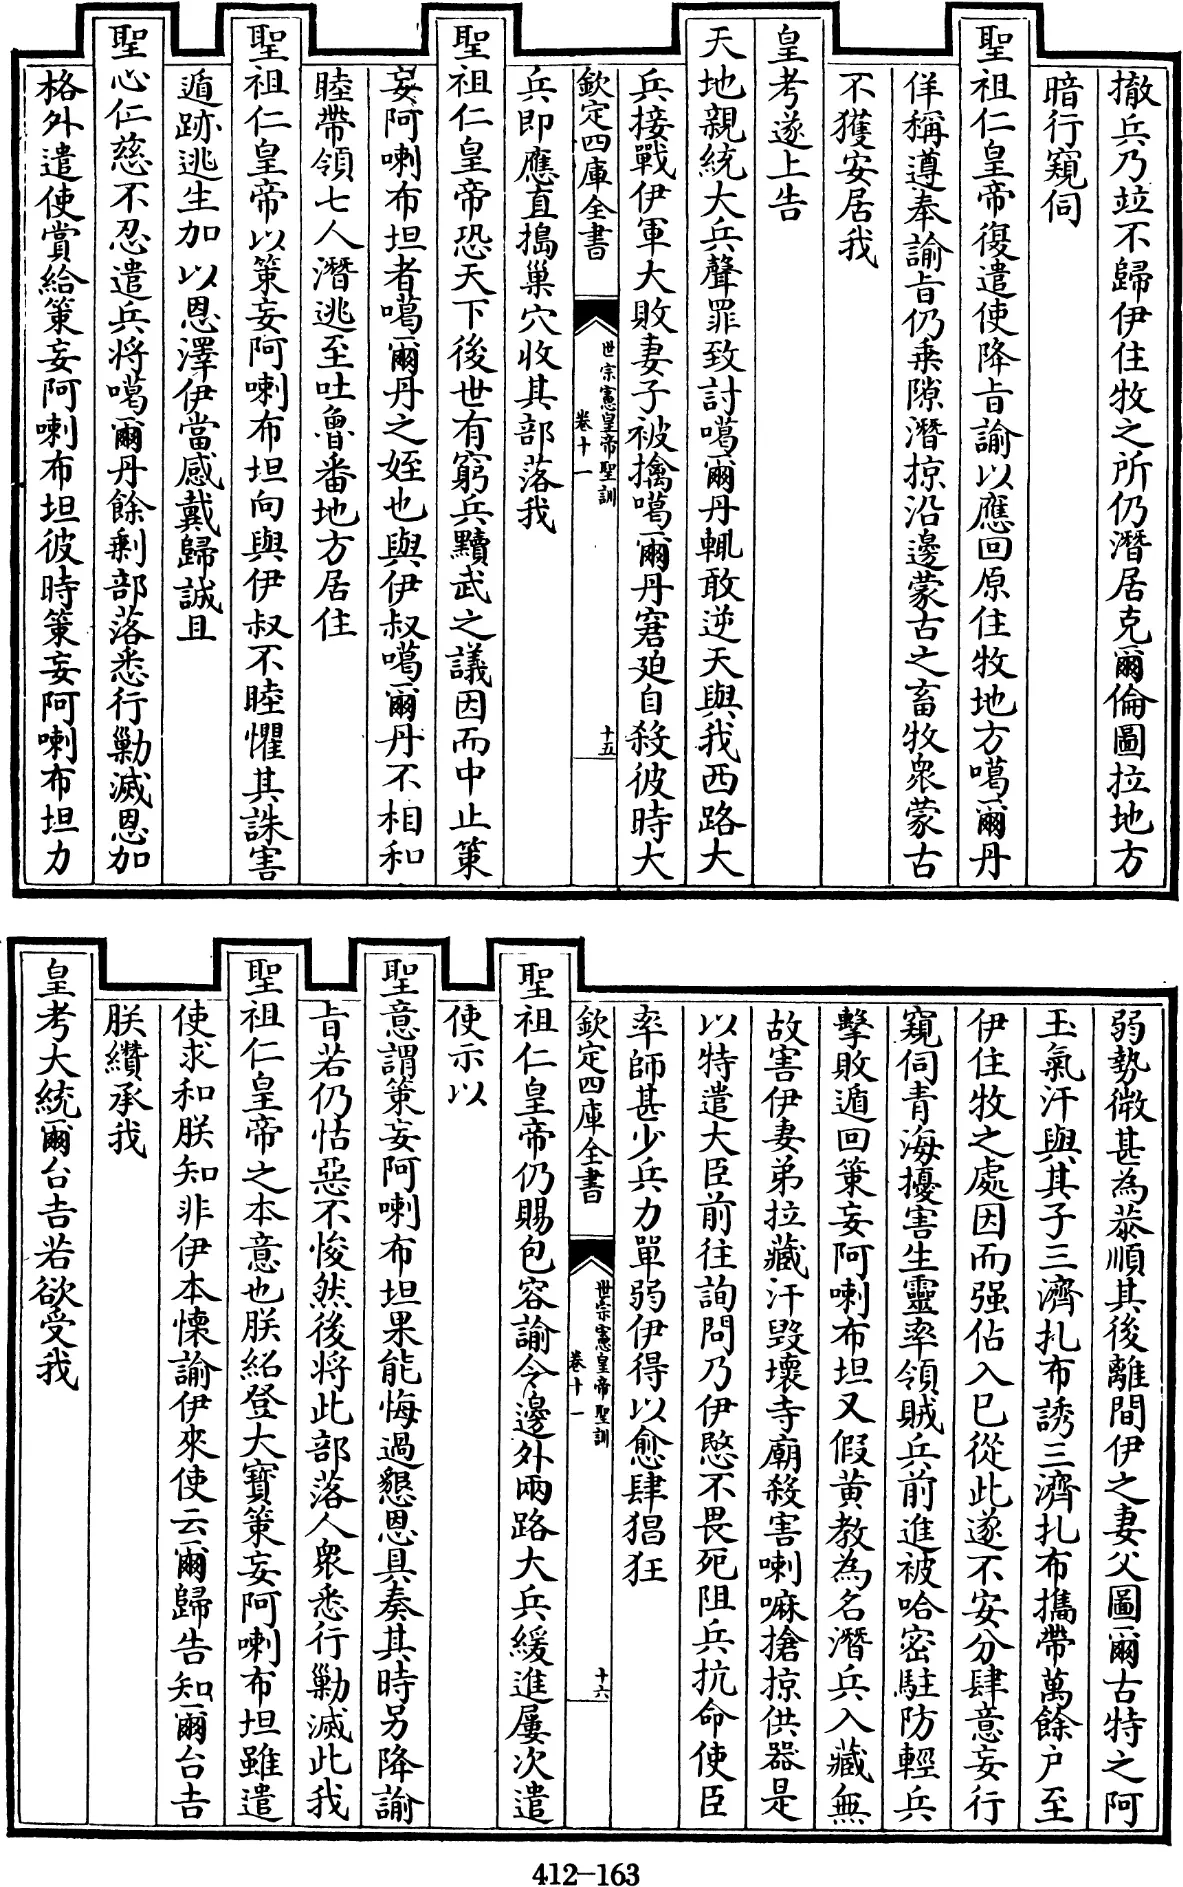 撤兵乃竝不歸伊住牧之所仍潛居克爾倫圖拉地方
暗行窺伺
聖祖仁皇帝復遣使降旨諭以應回原住牧地方噶爾丹
佯稱遵奉諭旨仍乗隙潛掠沿邊蒙古之畜牧衆蒙古
不獲安居我
皇考遂上告
天地親統大兵聲罪致討噶爾丹輒敢逆天與我西路大
兵接戰伊軍大敗妻子被擒噶爾丹窘廹自殺彼時大
欽定四庫全書
世宗憲皇帝聖訓
卷十一
十五
兵即應直搗巢穴收其部落我
聖祖仁皇帝恐天下後世有窮兵黷武之議因而中止策
妄阿喇布坦者噶爾丹之姪也與伊叔噶爾丹不相和
睦帶領七人潛逃至吐魯番地方居住
聖祖仁皇帝以策妄阿喇布坦向與伊叔不睦懼其誅害
遁跡逃生加以恩澤伊當感戴歸誠且
聖心仁慈不忍遣兵将噶爾丹餘剩部落悉行勦滅恩加
格外遣使賞給策妄阿喇布坦彼時策妄阿喇布坦力
弱勢微甚為恭順其後離間伊之妻父圖爾古特之阿
玉氣汗與其子三濟扎布誘三濟扎布攜帶萬餘戸至
伊住牧之處因而强佔入已從此遂不安分肆意妄行
窺伺青海擾害生靈率領賊兵前進被哈密駐防輕兵
擊敗遁回策妄阿喇布坦又假黄教為名潛兵入藏無
故害伊妻弟拉藏汗毀壞寺廟殺害喇嘛搶掠供器是
以特遣大臣前往詢問乃伊愍不畏死阻兵抗命使臣
率師甚少兵力單弱伊得以愈肆猖狂
欽定四庫全書
世宗憲皇帝聖訓
卷十一
十六
聖祖仁皇帝仍賜包容諭令邊外兩路大兵緩進屢次遣
使示以
聖意謂策妄阿喇布坦果能悔過懇恩具奏其時另降諭
旨若仍怙惡不悛然後将此部落人衆悉行勦滅此我
聖祖仁皇帝之本意也朕紹登大寶策妄阿喇布坦雖遣
使求和朕知非伊本懷諭伊來使云爾歸告知爾台吉
朕纘承我
皇考大統爾台吉若欲受我
412-163